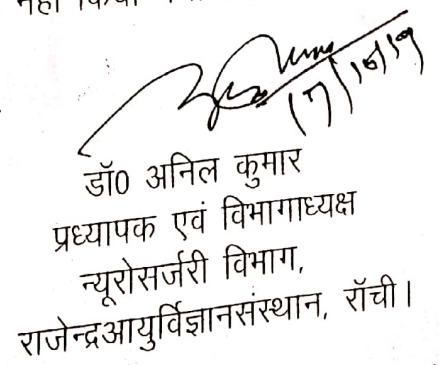 17/12/19
डॉ0 अनिल कुमार
प्रध्यापक एवं विभागाध्यक्ष
न्यूरोसर्जरी विभाग,
राजेन्द्रआयुर्विज्ञानसंस्थान, राॅची।